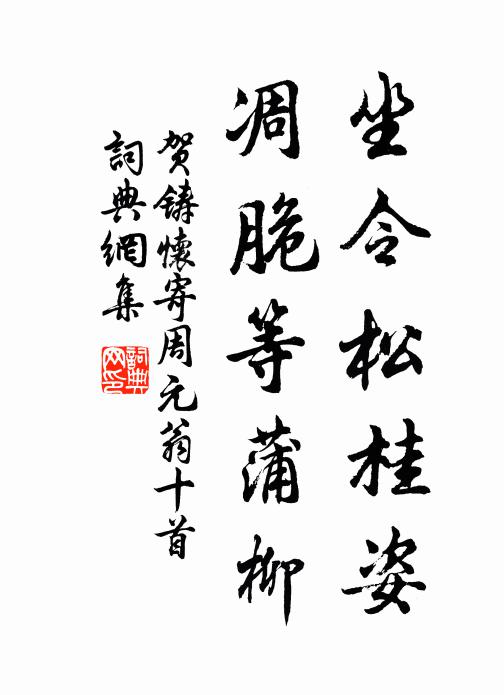 坐令松桂姿
凋脆等蒲柳
贺鑄懷寄周元翁十首
詞典網集
詞典網印